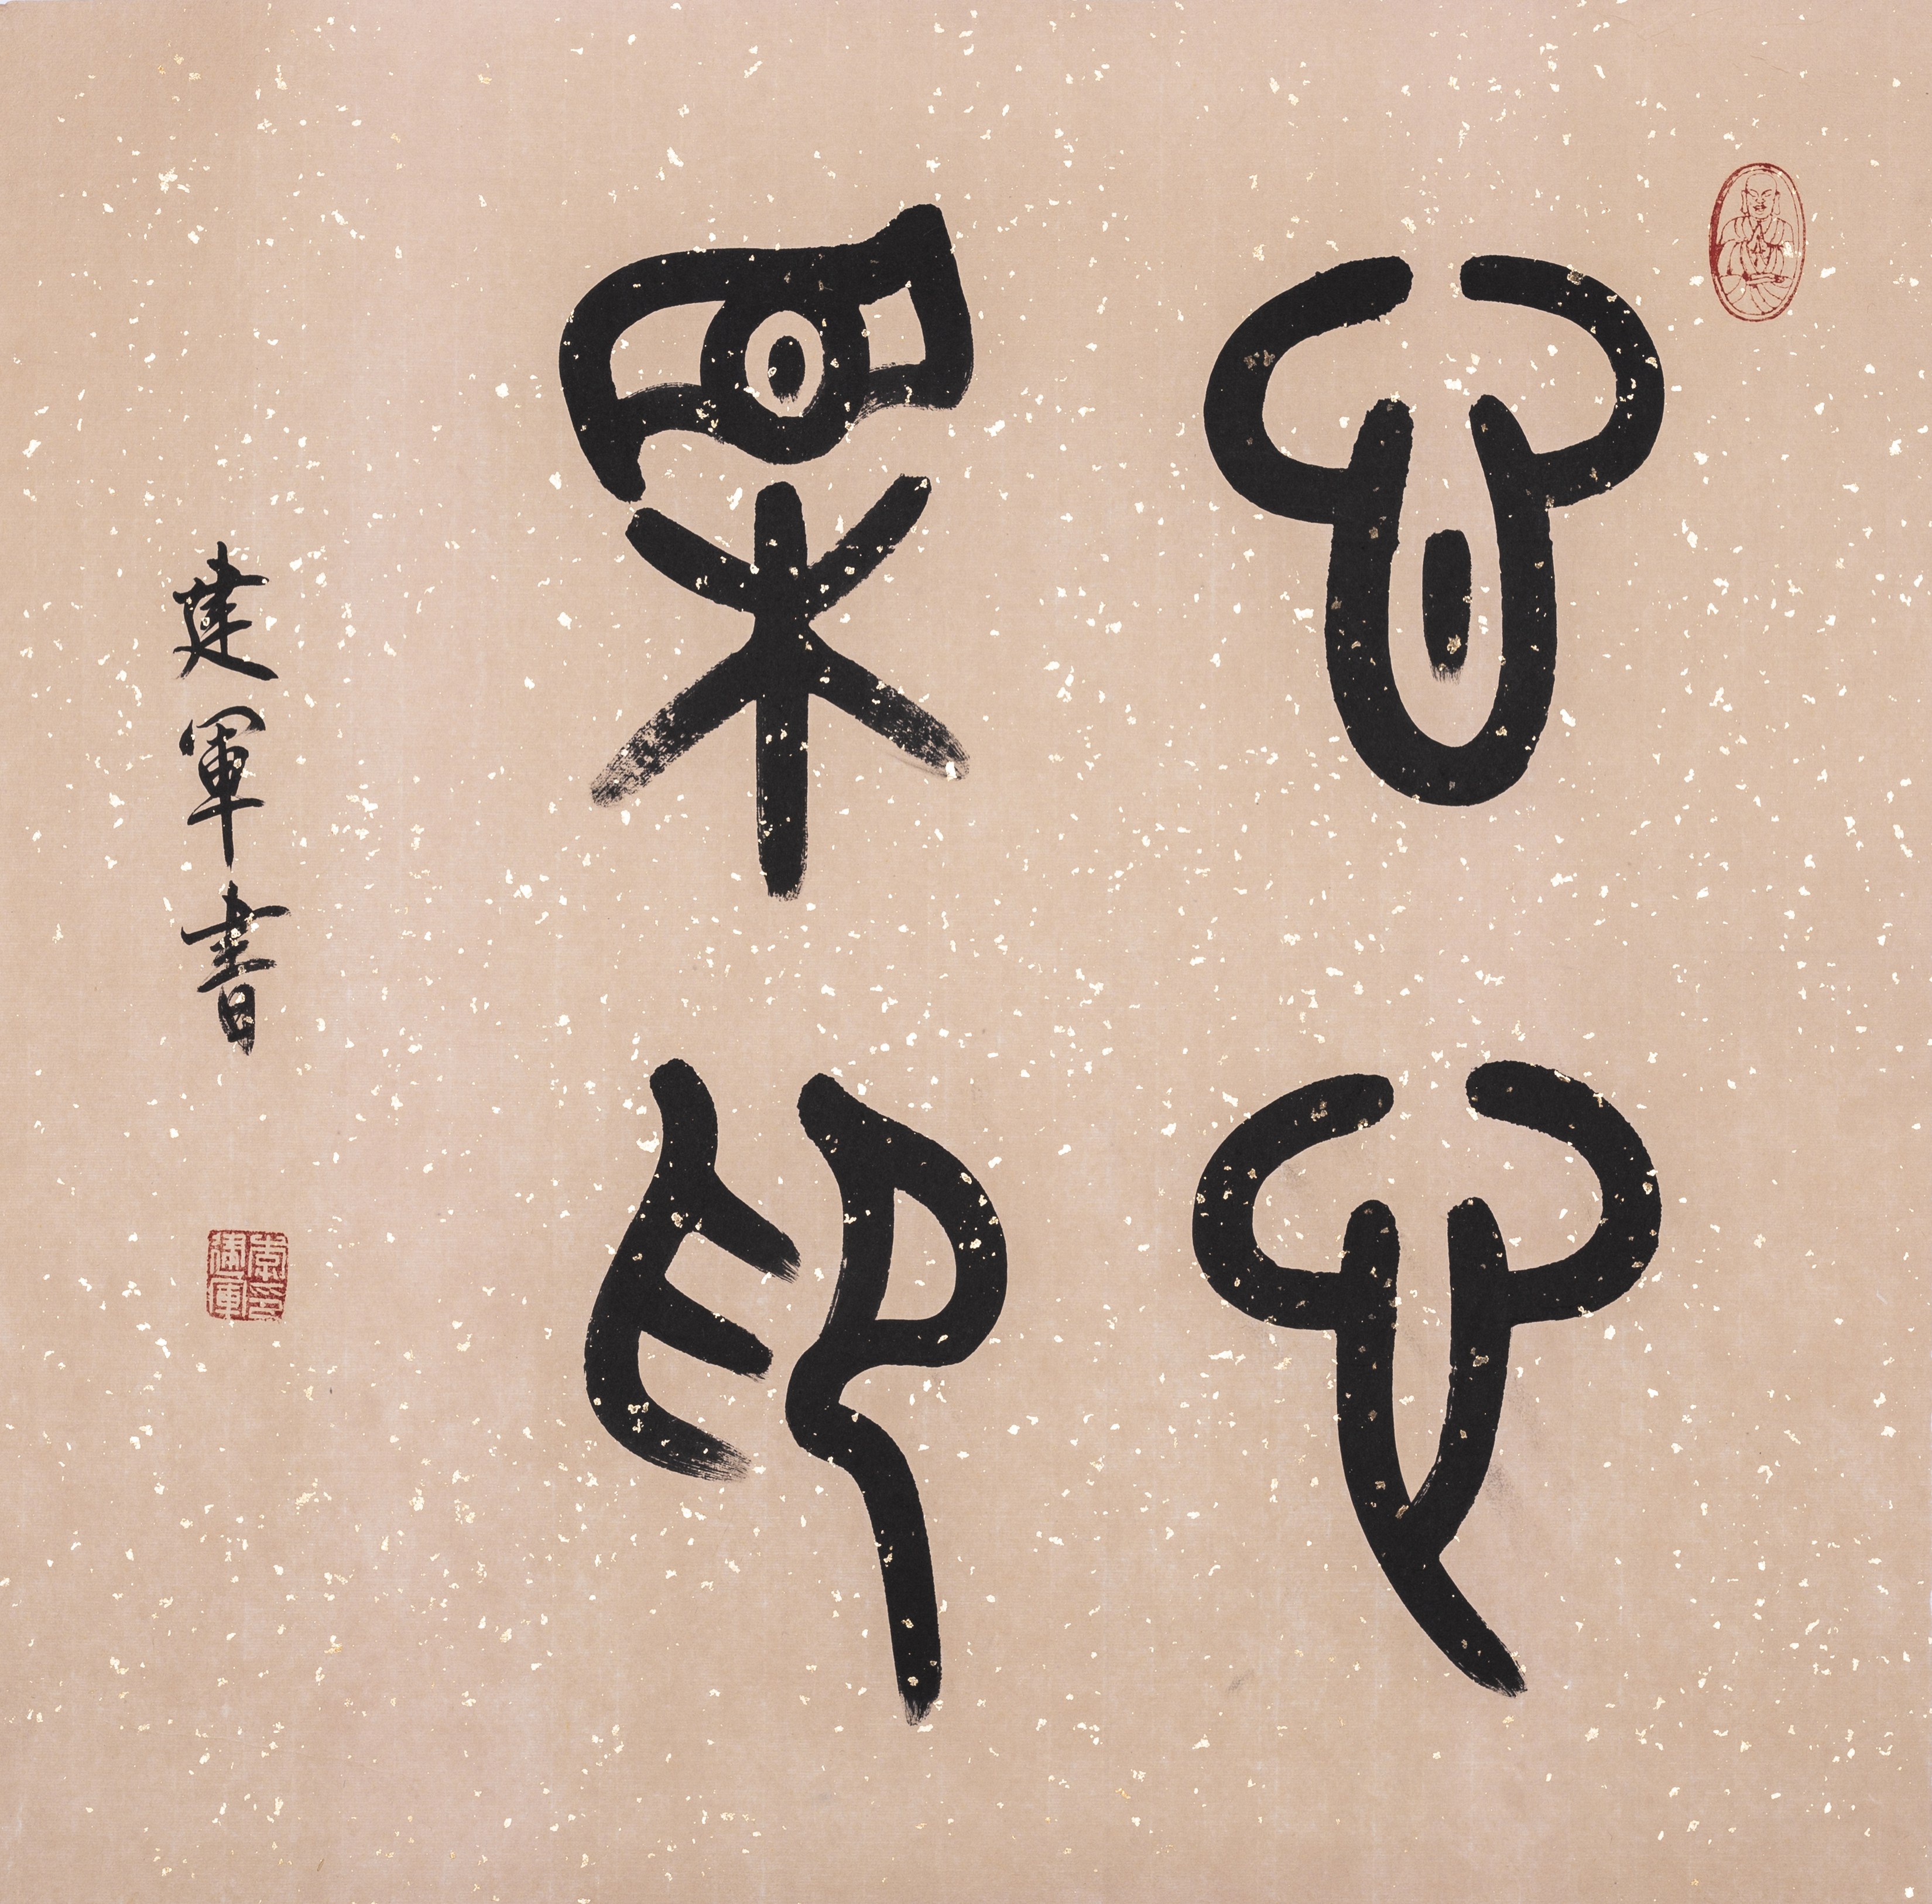 心心
相印
建軍書